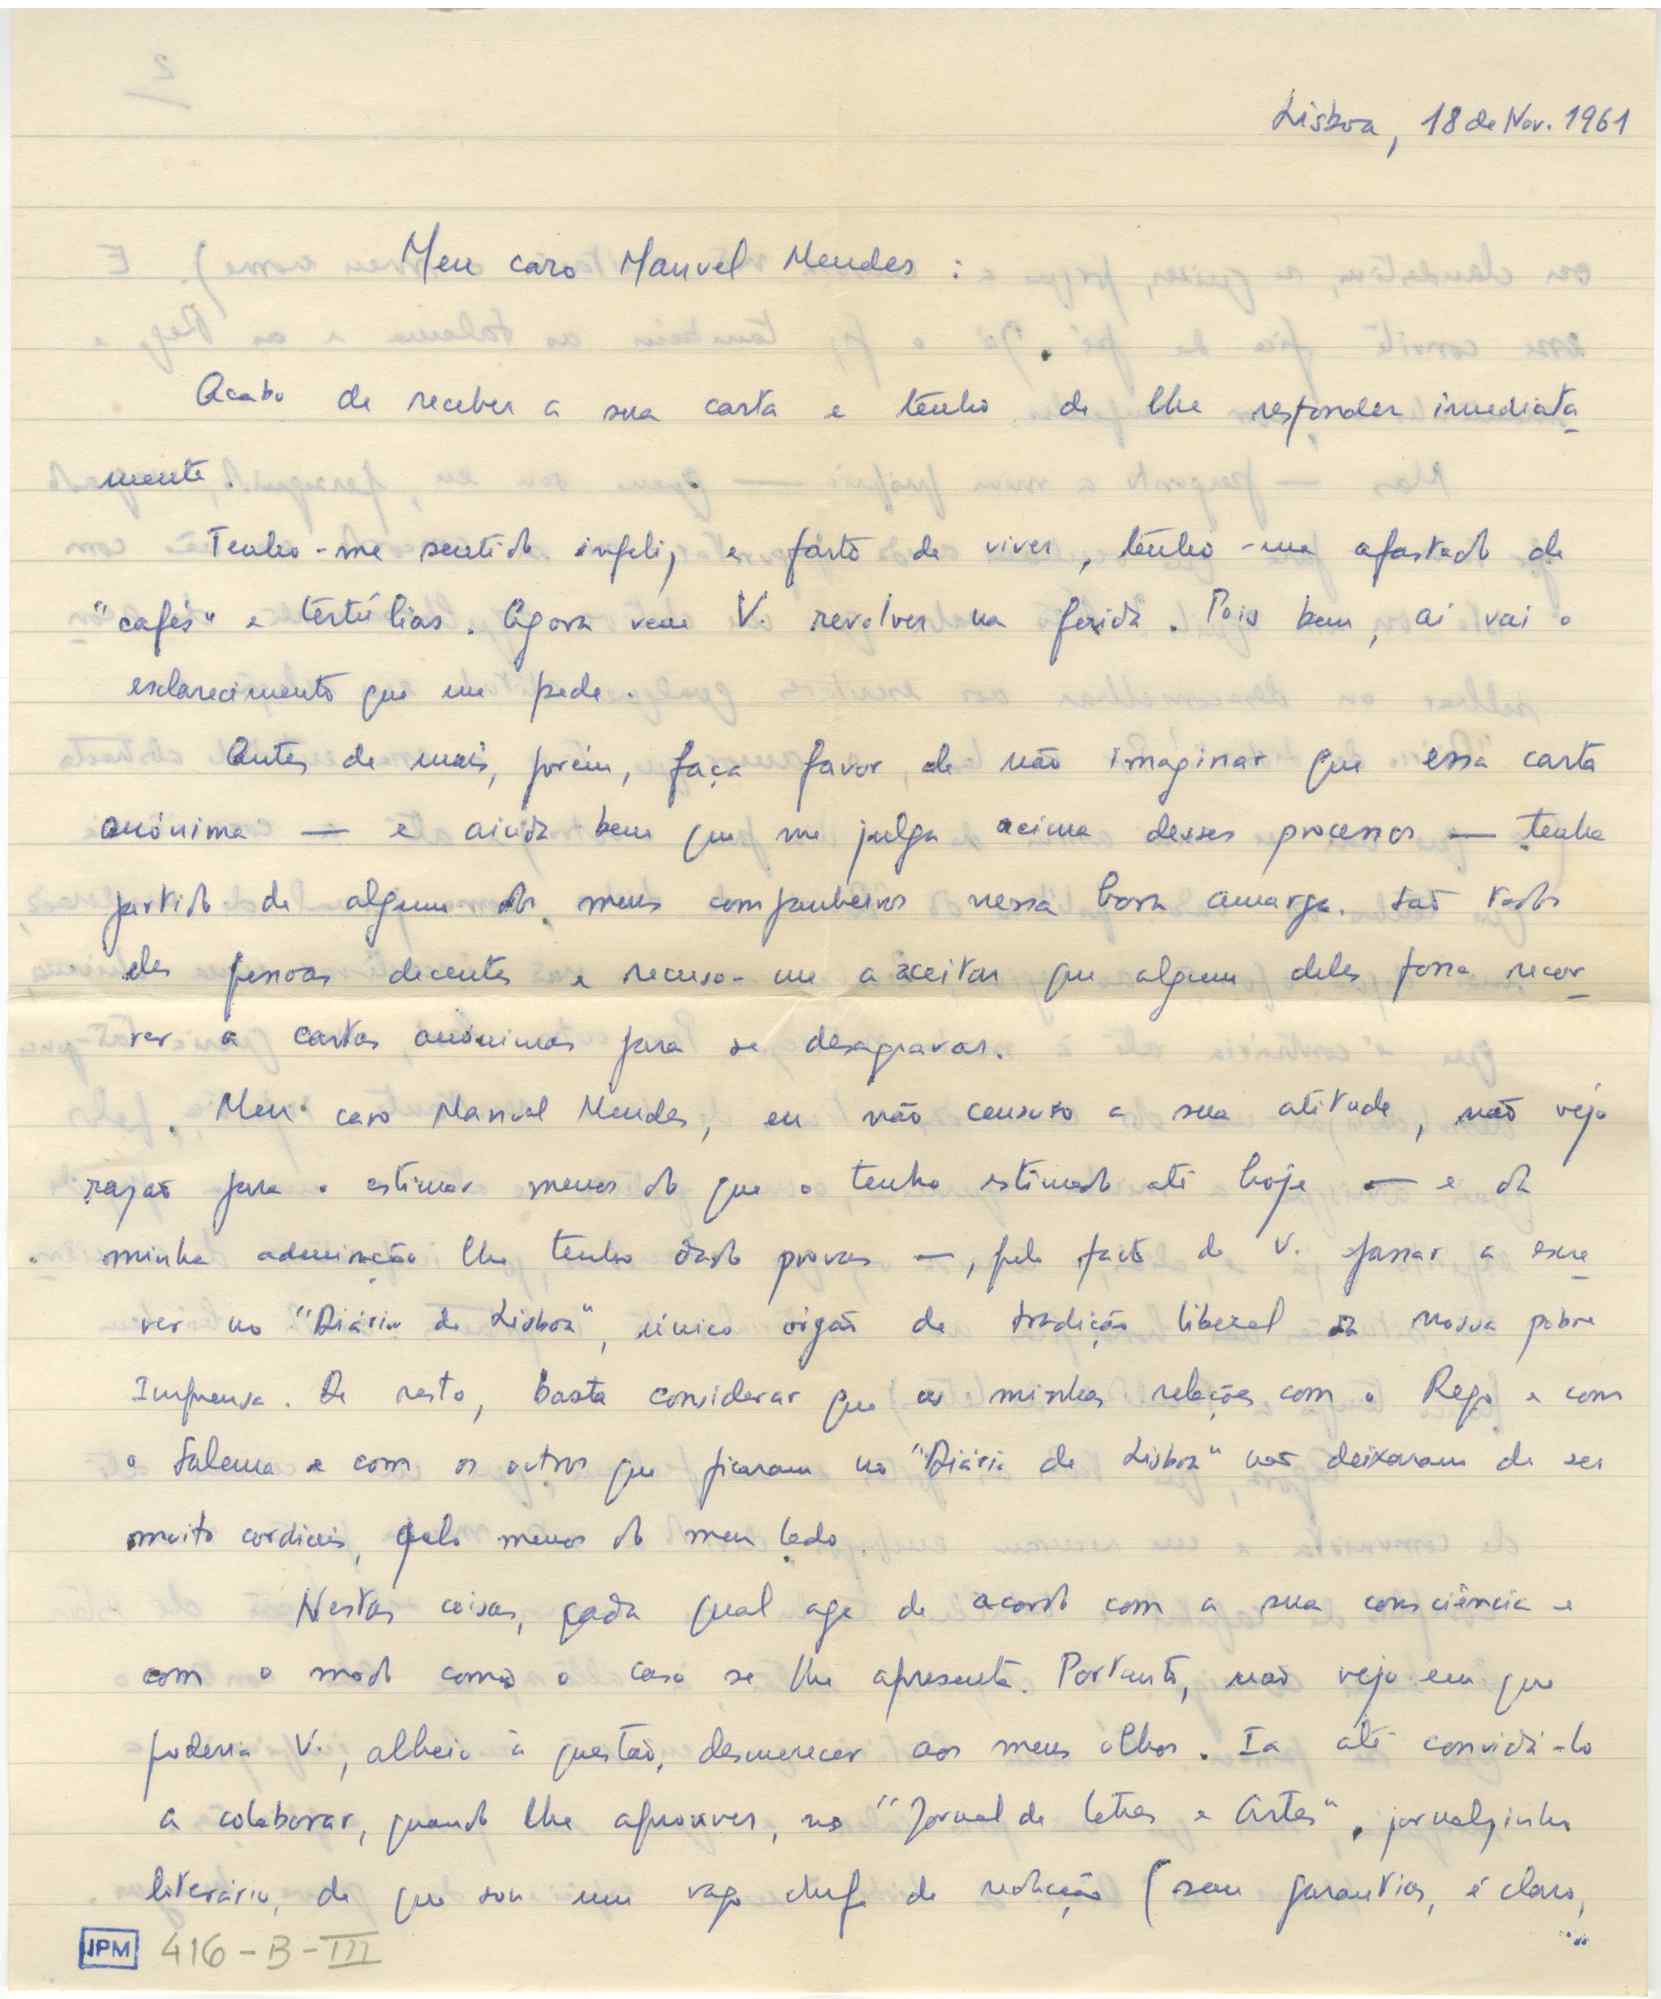 Lisboa, 18 de Nov. 1961
Meu caro Manuel Mendes :
Acabo de receber a sua carta e tenho de lhe responder imediata-
mente.
Tenho-me sentido infeliz e farto de viver, tenho-me afastado de
"cafés" e tertúlias. Agora vem V. revolver na ferida. Pois bem, aí vai o
esclarecimento que me pede.
Antes de mais, porém, faça favor de não imaginar que essa carta
anónima — e ainda bem que me julga acima desses processos — tenha
partido de algum dos meus companheiros nessa hora amarga. São todos
eles pessoas decentes e recuso-me a aceitar que algum deles possa recor-
rer a cartas anónimas para se desagravar.
Meu caro Manuel Mendes, eu não censuro a sua atitude, não vejo
razão para o estimar menos do que o tenho estimado até hoje — e da
minha admiração lhe tenho dado provas —, pelo facto de V. passar a escre-
ver no "Diário de Lisboa", único órgão de tradição liberal da nossa pobre
Imprensa. De resto, basta considerar que as minhas relações com o Rego e com
o Salema e com os outros que ficaram no "Diário de Lisboa" não deixaram de ser
muito cordiais, pelo menos do meu lado.
Nestas coisas, cada qual age de acordo com a sua consciência e
com o modo como o caso se lhe apresenta. Portanto, não vejo em que
poderia V., alheio à questão, desmerecer aos meus olhos. Ia até convidá-lo
a colaborar, quando lhe aprouver, no "Jornal de Letras e Artes", jornalzinho
literário, de que sou um vago chefe de redacção (sem garantias, é claro,
JPM 416-B-III